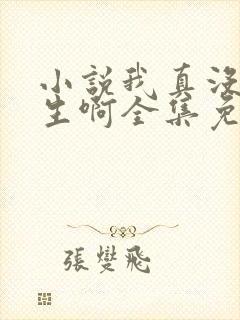 小說我真沒
生啊全集免
張燮飛